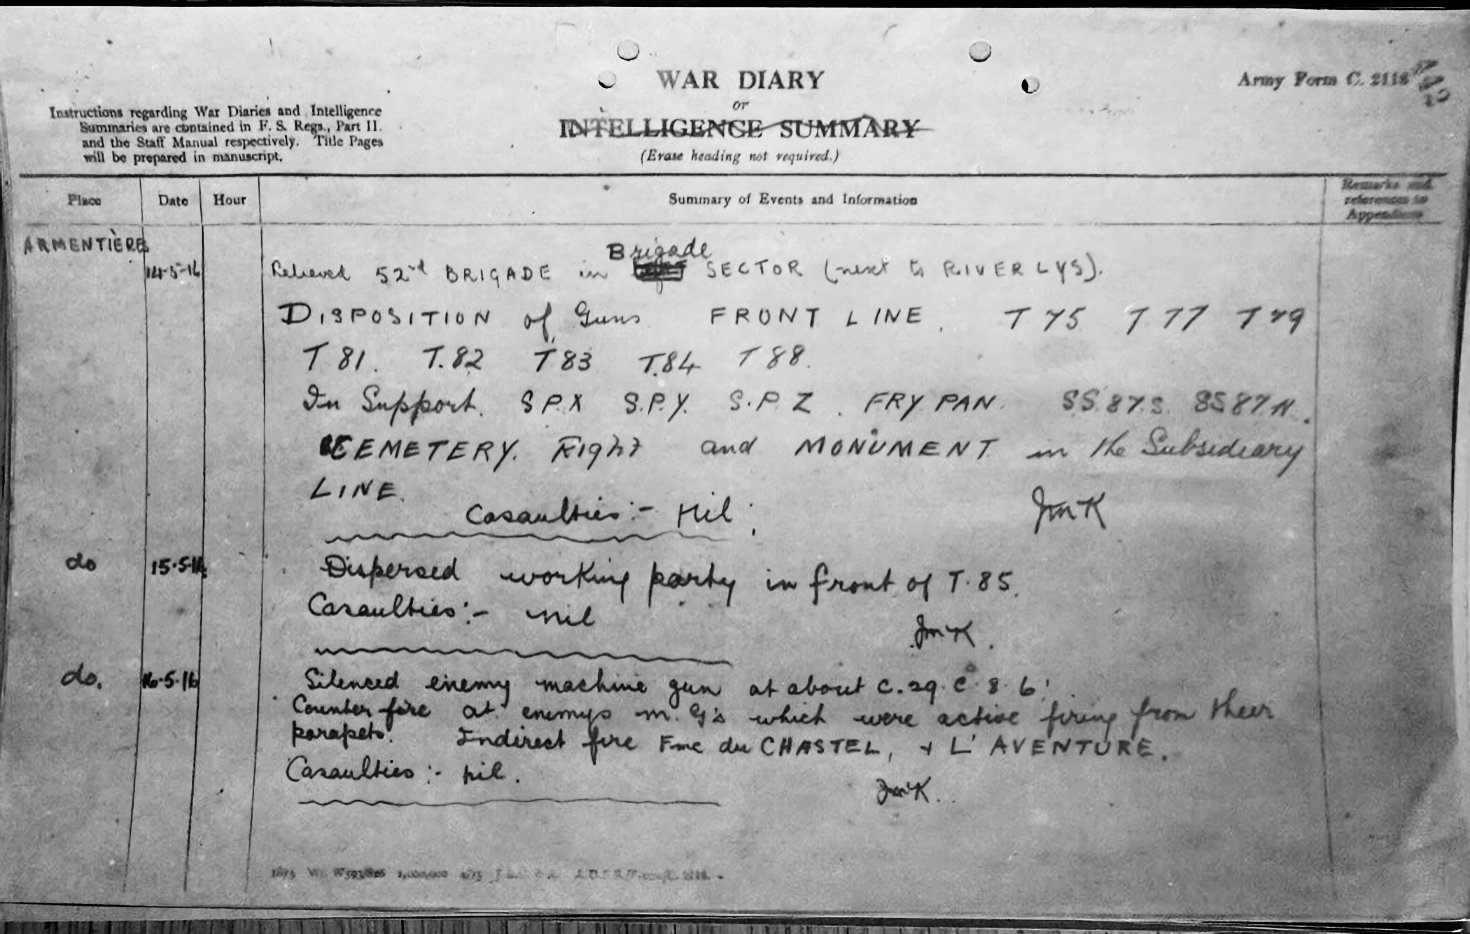 WAR DIARY
or
INTELLIGENCE SUMMARY
(Erase heading not required.)
Army Form C. 2118
Instructions regarding War Diaries and Intelligence
Summaries are contained in F. S. Regs., Part II.
and the Staff Manual respectively. Title Pages
will be prepared in manuscript.
Place Date Hour Summary of Events and Information Remarks and references to Appendices
ARMENTIÈRES
14-5-16 Relieved 52nd BRIGADE in Brigade SECTOR (next to RIVER LYS).
DISPOSITION of Guns FRONT LINE. T 75 T 77 T 79
T 81. T.82 T 83 T.84 T 88.
In Support. S P.X S.P.Y. S.P.Z. FRY PAN. SS.87.S. SS 87 N.
CEMETERY. Right and MONUMENT in the Subsidiary
LINE.
Casaulties:- Nil. JMK
do 15.5.16 Dispersed working party in front of T.85.
Casaulties:- Nil
JMK.
do. 16.5.16 Silenced enemy machine gun at about C.29.C.8.6.
Counter fire at enemys M.G's which were active firing from their
parapets. Indirect fire Fme du CHASTEL, + L'AVENTURE.
Casaulties:- Nil.
JMK.